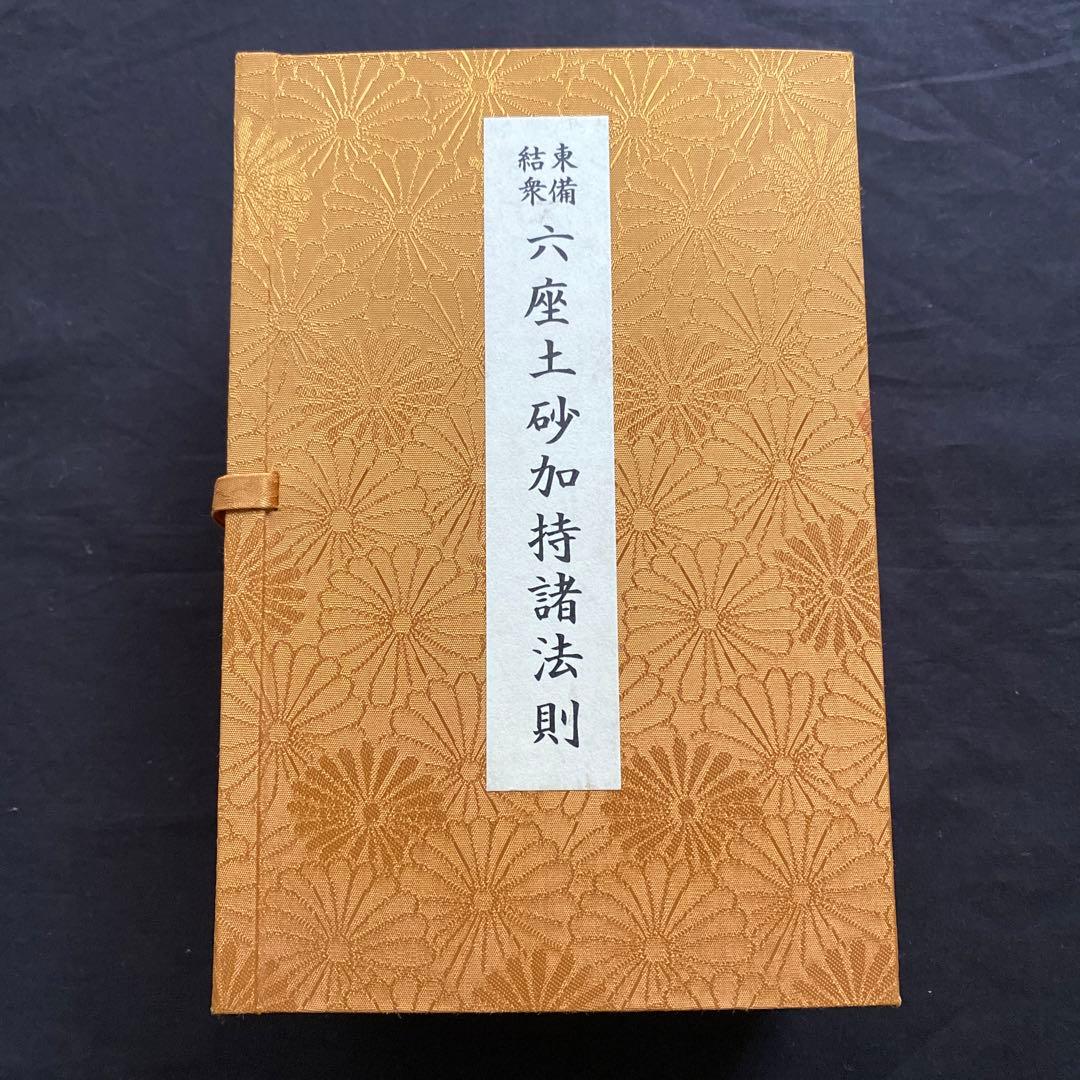 東備
結衆
六座土砂加持諸法則